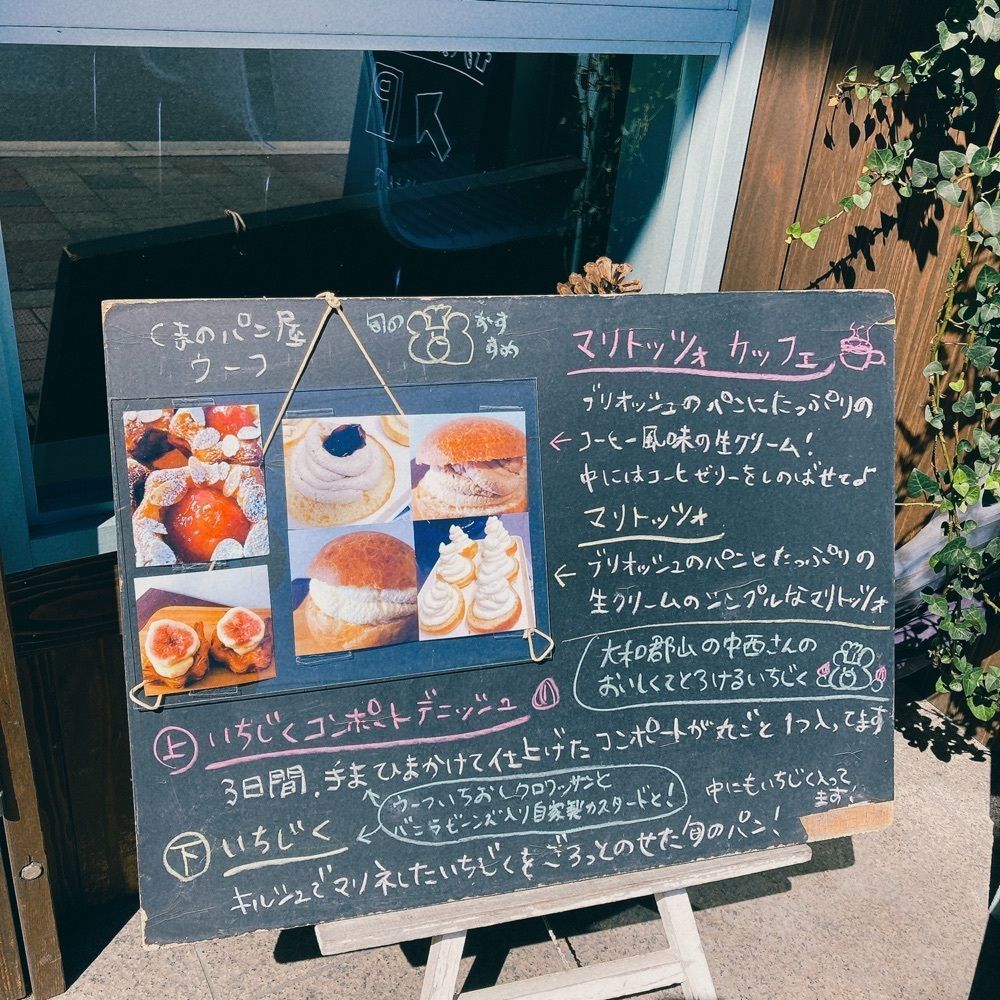 くまのパン屋
ウーフ
旬の
おす
すめ
マリトッツォ カッフェ
ブリオッシュのパンにたっぷりの
コーヒー風味の生クリーム!
中にはコーヒゼリーをしのばせてよ
マリトッツォ
ブリオッシュのパンとたっぷりの
生クリームのシンプルなマリトッツォ
大和郡山の中西さんの
おいしくてとろけるいちじく
上 いちじくコンポートデニッシュ
3日間、手まひまかけて仕上げたコンポートが丸ごと1つ入ってます
ウーフいちおしクロワッサンと
バニラビーンズ入り自家製カスタードと!
中にもいちじく入って
ます!
下 いちじく
キルシュでマリネしたいちじくをごろっとのせた旬のパン!
P